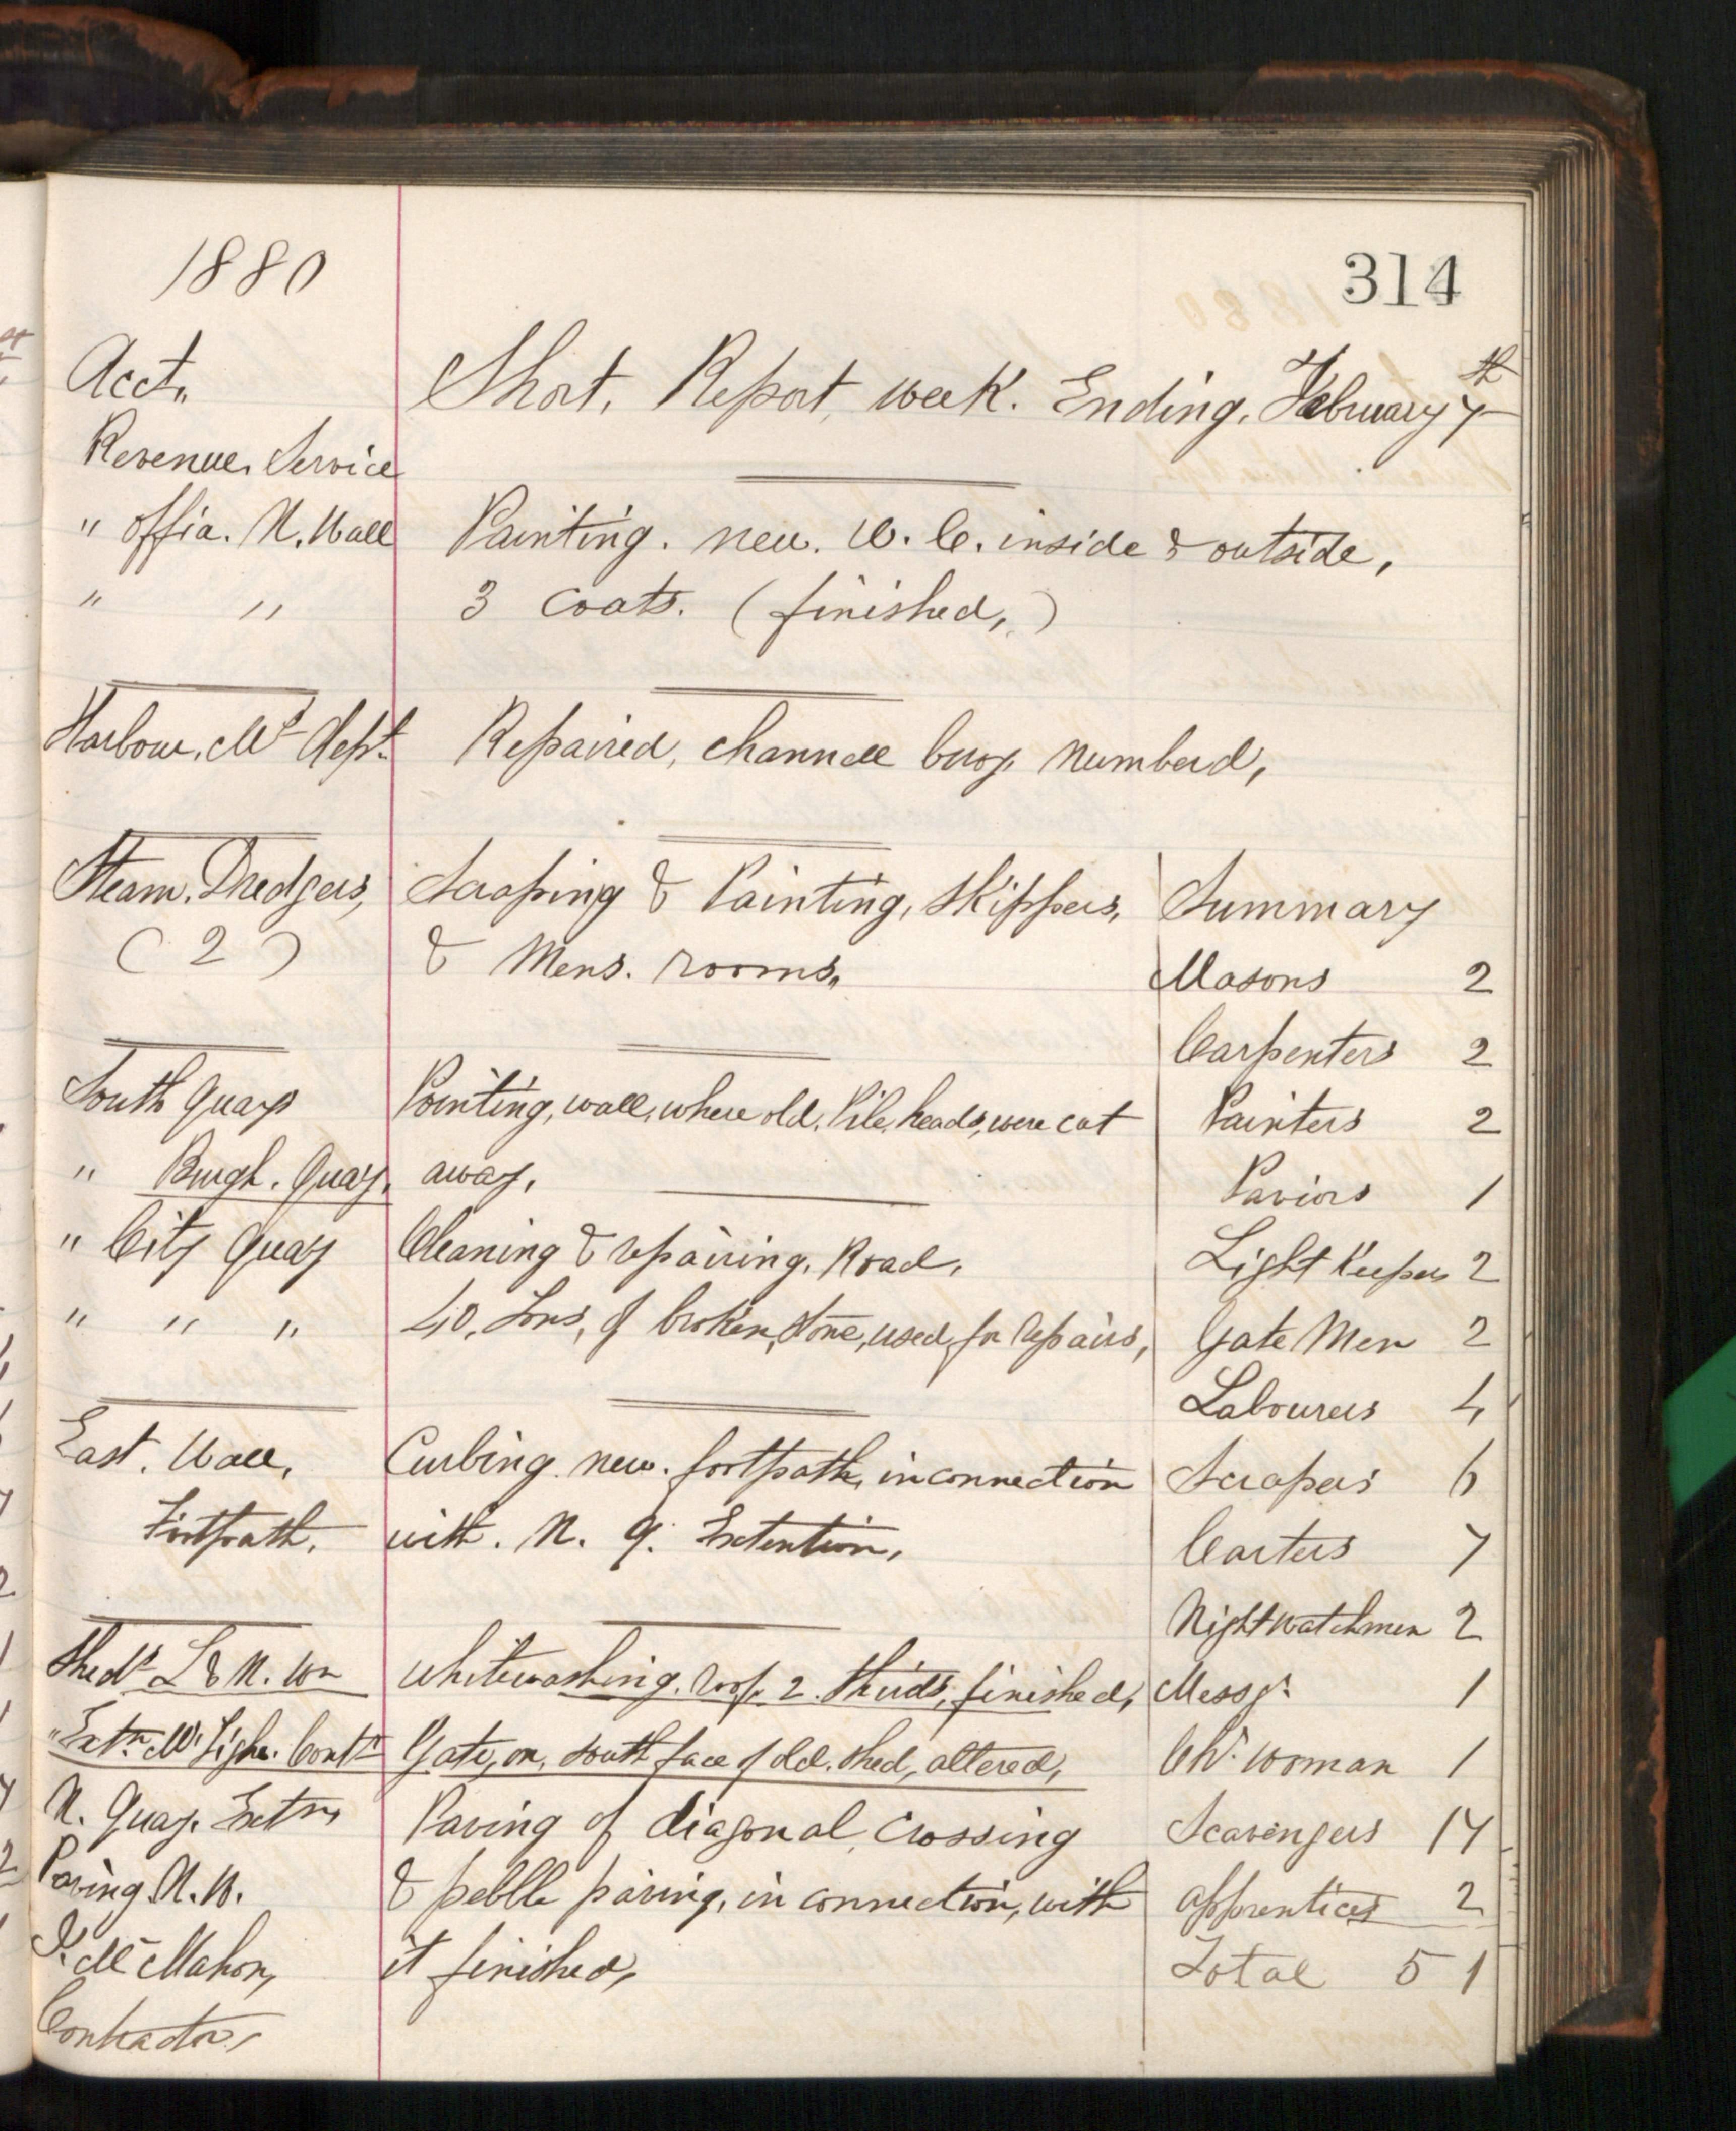 1880
314
Acct.
Short. Report, week. Ending. February 7th
Revenue. Service
" Office. N. Wall
Painting. new. W. C. inside & outside,
" "
3 Coats. (finished,)
Harbour. Mr Dept.
Repaired, channell buoy. numberd,
Steam. Dredgers,
Scraping & Painting, Skippers,
(2)
& Mens. rooms.
South Quays
Pointing, wall, where old. Pile, heads, were cut
" Burgh. Quay.
away,
" City Quay
Cleaning & repairing. Road,
" " "
40, Tons, of broken, stone, used, for repairs,
East. Wall,
Curbing. new. footpath, in connection
Footpath.
with. N. Q. Extention,
Shed L & N. Wn
Whitewashing. roof. 2. thirds, finished,
Gate, on, south face of old. shed, altered,
N. Quay. Extn,
Paving of diagonal, Crossing
Paving N. W.
& pebble paving, in connection, with
Mc Mahon,
it finished,
Contractor,
Summary
Masons 2
Carpenters 2
Painters 2
Paviors 1
Light Keepers 2
Gate Men 2
Labourers 4
Scrapers 6
Carters 7
Nightwatchmen 2
Messr. 1
Chr. woman 1
Scavengers 17
apprentices 2
Total 51